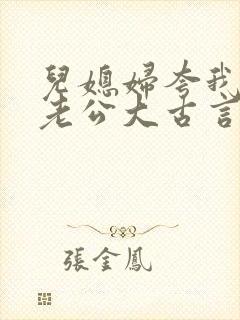 兒媳婦夸我
老公大古言
張金鳳